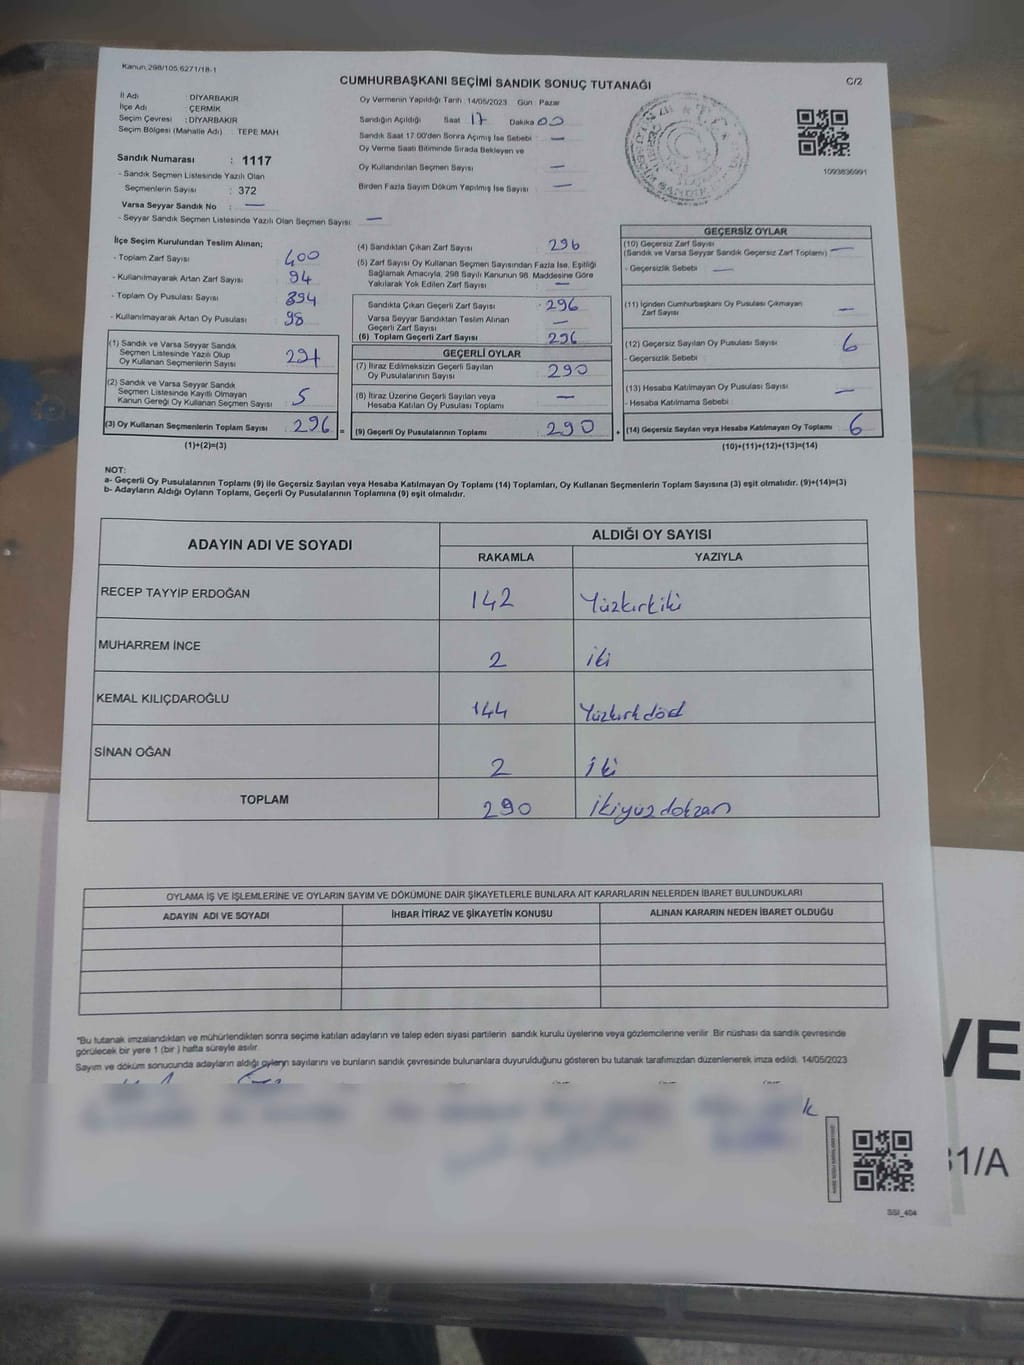 Kanun.298/105.6271/18-1
CUMHURBAŞKANI SEÇİMİ SANDIK SONUÇ TUTANAĞI
C/2
İl Adı : DİYARBAKIR
İlçe Adı : ÇERMİK
Seçim Çevresi : DİYARBAKIR
Seçim Bölgesi (Mahalle Adı) : TEPE MAH
Sandık Numarası : 1117
- Sandık Seçmen Listesinde Yazılı Olan
Seçmenlerin Sayısı : 372
Varsa Seyyar Sandık No : —
- Seyyar Sandık Seçmen Listesinde Yazılı Olan Seçmen Sayısı : —
Oy Vermenin Yapıldığı Tarih : 14/05/2023 Gün : Pazar
Sandığın Açıldığı Saat : 17 Dakika : 00
Sandık Saat 17:00'den Sonra Açımış İse Sebebi : —
Oy Verme Saati Bitiminde Sırada Bekleyen ve
Oy Kullandırılan Seçmen Sayısı : —
Birden Fazla Sayım Döküm Yapılmış İse Sayısı : —
1093836991
İlçe Seçim Kurulundan Teslim Alınan;
- Toplam Zarf Sayısı : 400
- Kullanılmayarak Artan Zarf Sayısı : 94
- Toplam Oy Pusulası Sayısı : 394
- Kullanılmayarak Artan Oy Pusulası : 98
(1) Sandık ve Varsa Seyyar Sandık
Seçmen Listesinde Yazılı Olup
Oy Kullanan Seçmenlerin Sayısı : 291
(2) Sandık ve Varsa Seyyar Sandık
Seçmen Listesinde Kayıtlı Olmayan
Kanun Gereği Oy Kullanan Seçmen Sayısı : 5
(3) Oy Kullanan Seçmenlerin Toplam Sayısı : 296 =
(1)+(2)=(3)
(4) Sandıktan Çıkan Zarf Sayısı : 296
(5) Zarf Sayısı Oy Kullanan Seçmen Sayısından Fazla İse, Eşitliği
Sağlamak Amacıyla, 298 Sayılı Kanunun 98. Maddesine Göre
Yakılarak Yok Edilen Zarf Sayısı : —
Sandıkta Çıkan Geçerli Zarf Sayısı : 296
Varsa Seyyar Sandıktan Teslim Alınan
Geçerli Zarf Sayısı : —
(6) Toplam Geçerli Zarf Sayısı : 296
GEÇERLİ OYLAR
(7) İtiraz Edilmeksizin Geçerli Sayılan
Oy Pusulalarının Sayısı : 290
(8) İtiraz Üzerine Geçerli Sayılan veya
Hesaba Katılan Oy Pusulası Toplamı : —
(9) Geçerli Oy Pusulalarının Toplamı : 290 +
GEÇERSİZ OYLAR
(10) Geçersiz Zarf Sayısı
(Sandık ve Varsa Seyyar Sandık Geçersiz Zarf Toplamı) : —
- Geçersizlik Sebebi : —
(11) İçinden Cumhurbaşkanı Oy Pusulası Çıkmayan
Zarf Sayısı : —
(12) Geçersiz Sayılan Oy Pusulası Sayısı : 6
- Geçersizlik Sebebi :
(13) Hesaba Katılmayan Oy Pusulası Sayısı : —
- Hesaba Katılmama Sebebi :
(14) Geçersiz Sayılan veya Hesaba Katılmayan Oy Toplamı : 6
(10)+(11)+(12)+(13)=(14)
NOT:
a- Geçerli Oy Pusulalarının Toplamı (9) ile Geçersiz Sayılan veya Hesaba Katılmayan Oy Toplamı (14) Toplamları, Oy Kullanan Seçmenlerin Toplam Sayısına (3) eşit olmalıdır. (9)+(14)=(3)
b- Adayların Aldığı Oyların Toplamı, Geçerli Oy Pusulalarının Toplamına (9) eşit olmalıdır.
ADAYIN ADI VE SOYADI
ALDIĞI OY SAYISI
RAKAMLA YAZIYLA
RECEP TAYYİP ERDOĞAN 142 Yüzkırkiki
MUHARREM İNCE 2 iki
KEMAL KILIÇDAROĞLU 144 Yüzkırkdört
SİNAN OĞAN 2 İki
TOPLAM 290 ikiyüzdoksan
OYLAMA İŞ VE İŞLEMLERİNE VE OYLARIN SAYIM VE DÖKÜMÜNE DAİR ŞİKAYETLERLE BUNLARA AİT KARARLARIN NELERDEN İBARET BULUNDUKLARI
ADAYIN ADI VE SOYADI
İHBAR İTİRAZ VE ŞİKAYETİN KONUSU
ALINAN KARARIN NEDEN İBARET OLDUĞU
"Bu tutanak imzalandıktan ve mühürlendikten sonra seçime katılan adayların ve talep eden siyasi partilerin sandık kurulu üyelerine veya gözlemcilerine verilir. Bir nüshası da sandık çevresinde
görülecek bir yere 1 (bir ) hafta süreyle asılır.
Sayım ve döküm sonucunda adayların aldığı oyların sayılarını ve bunların sandık çevresinde bulunanlara duyurulduğunu gösteren bu tutanak tarafımızdan düzenlenerek imza edildi. 14/05/2023
SSI_404
VE
31/A